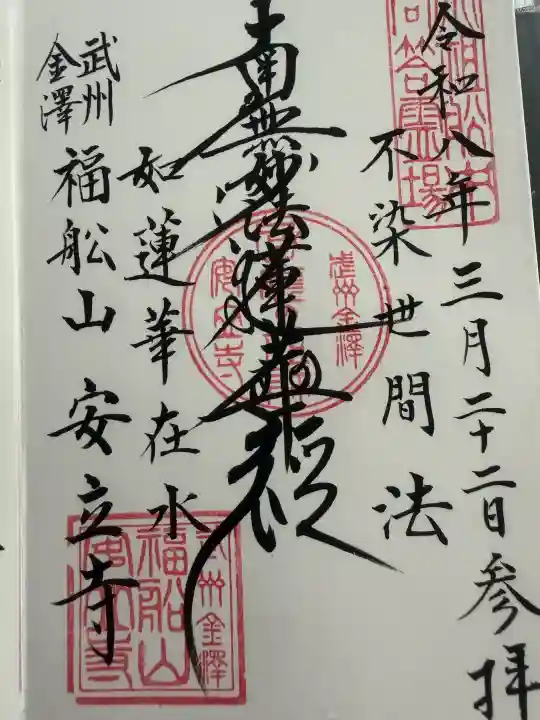 令和八年三月二十二日参拝
不染世間法
南無妙法蓮華経
如蓮華在水
武州
金澤
福舩山 安立寺
武州金澤
安立寺
武州金澤
福舩山
安立寺